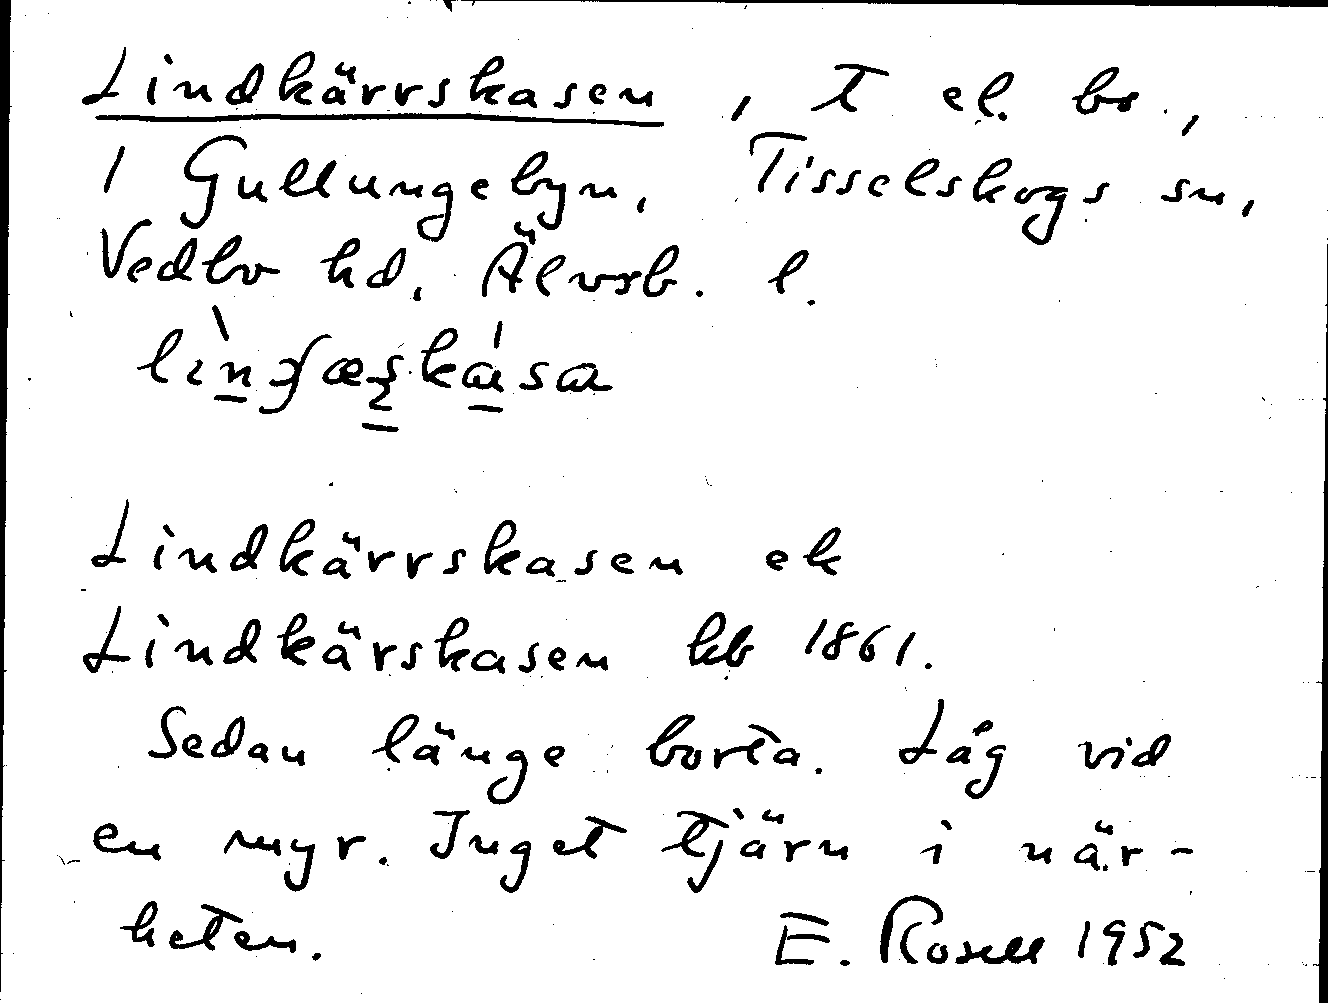 Lindkärrskasen, t el. bs.,
1 Gullungebyn, Tisselskogs sn,
Vedbo hd, Älvsb. l.
Lindkärrskasen ek
Lindkärskasen kb 1861.
Sedan länge borta. Låg vid
en myr. Inget tjärn i när-
heten. E. Rosell 1952